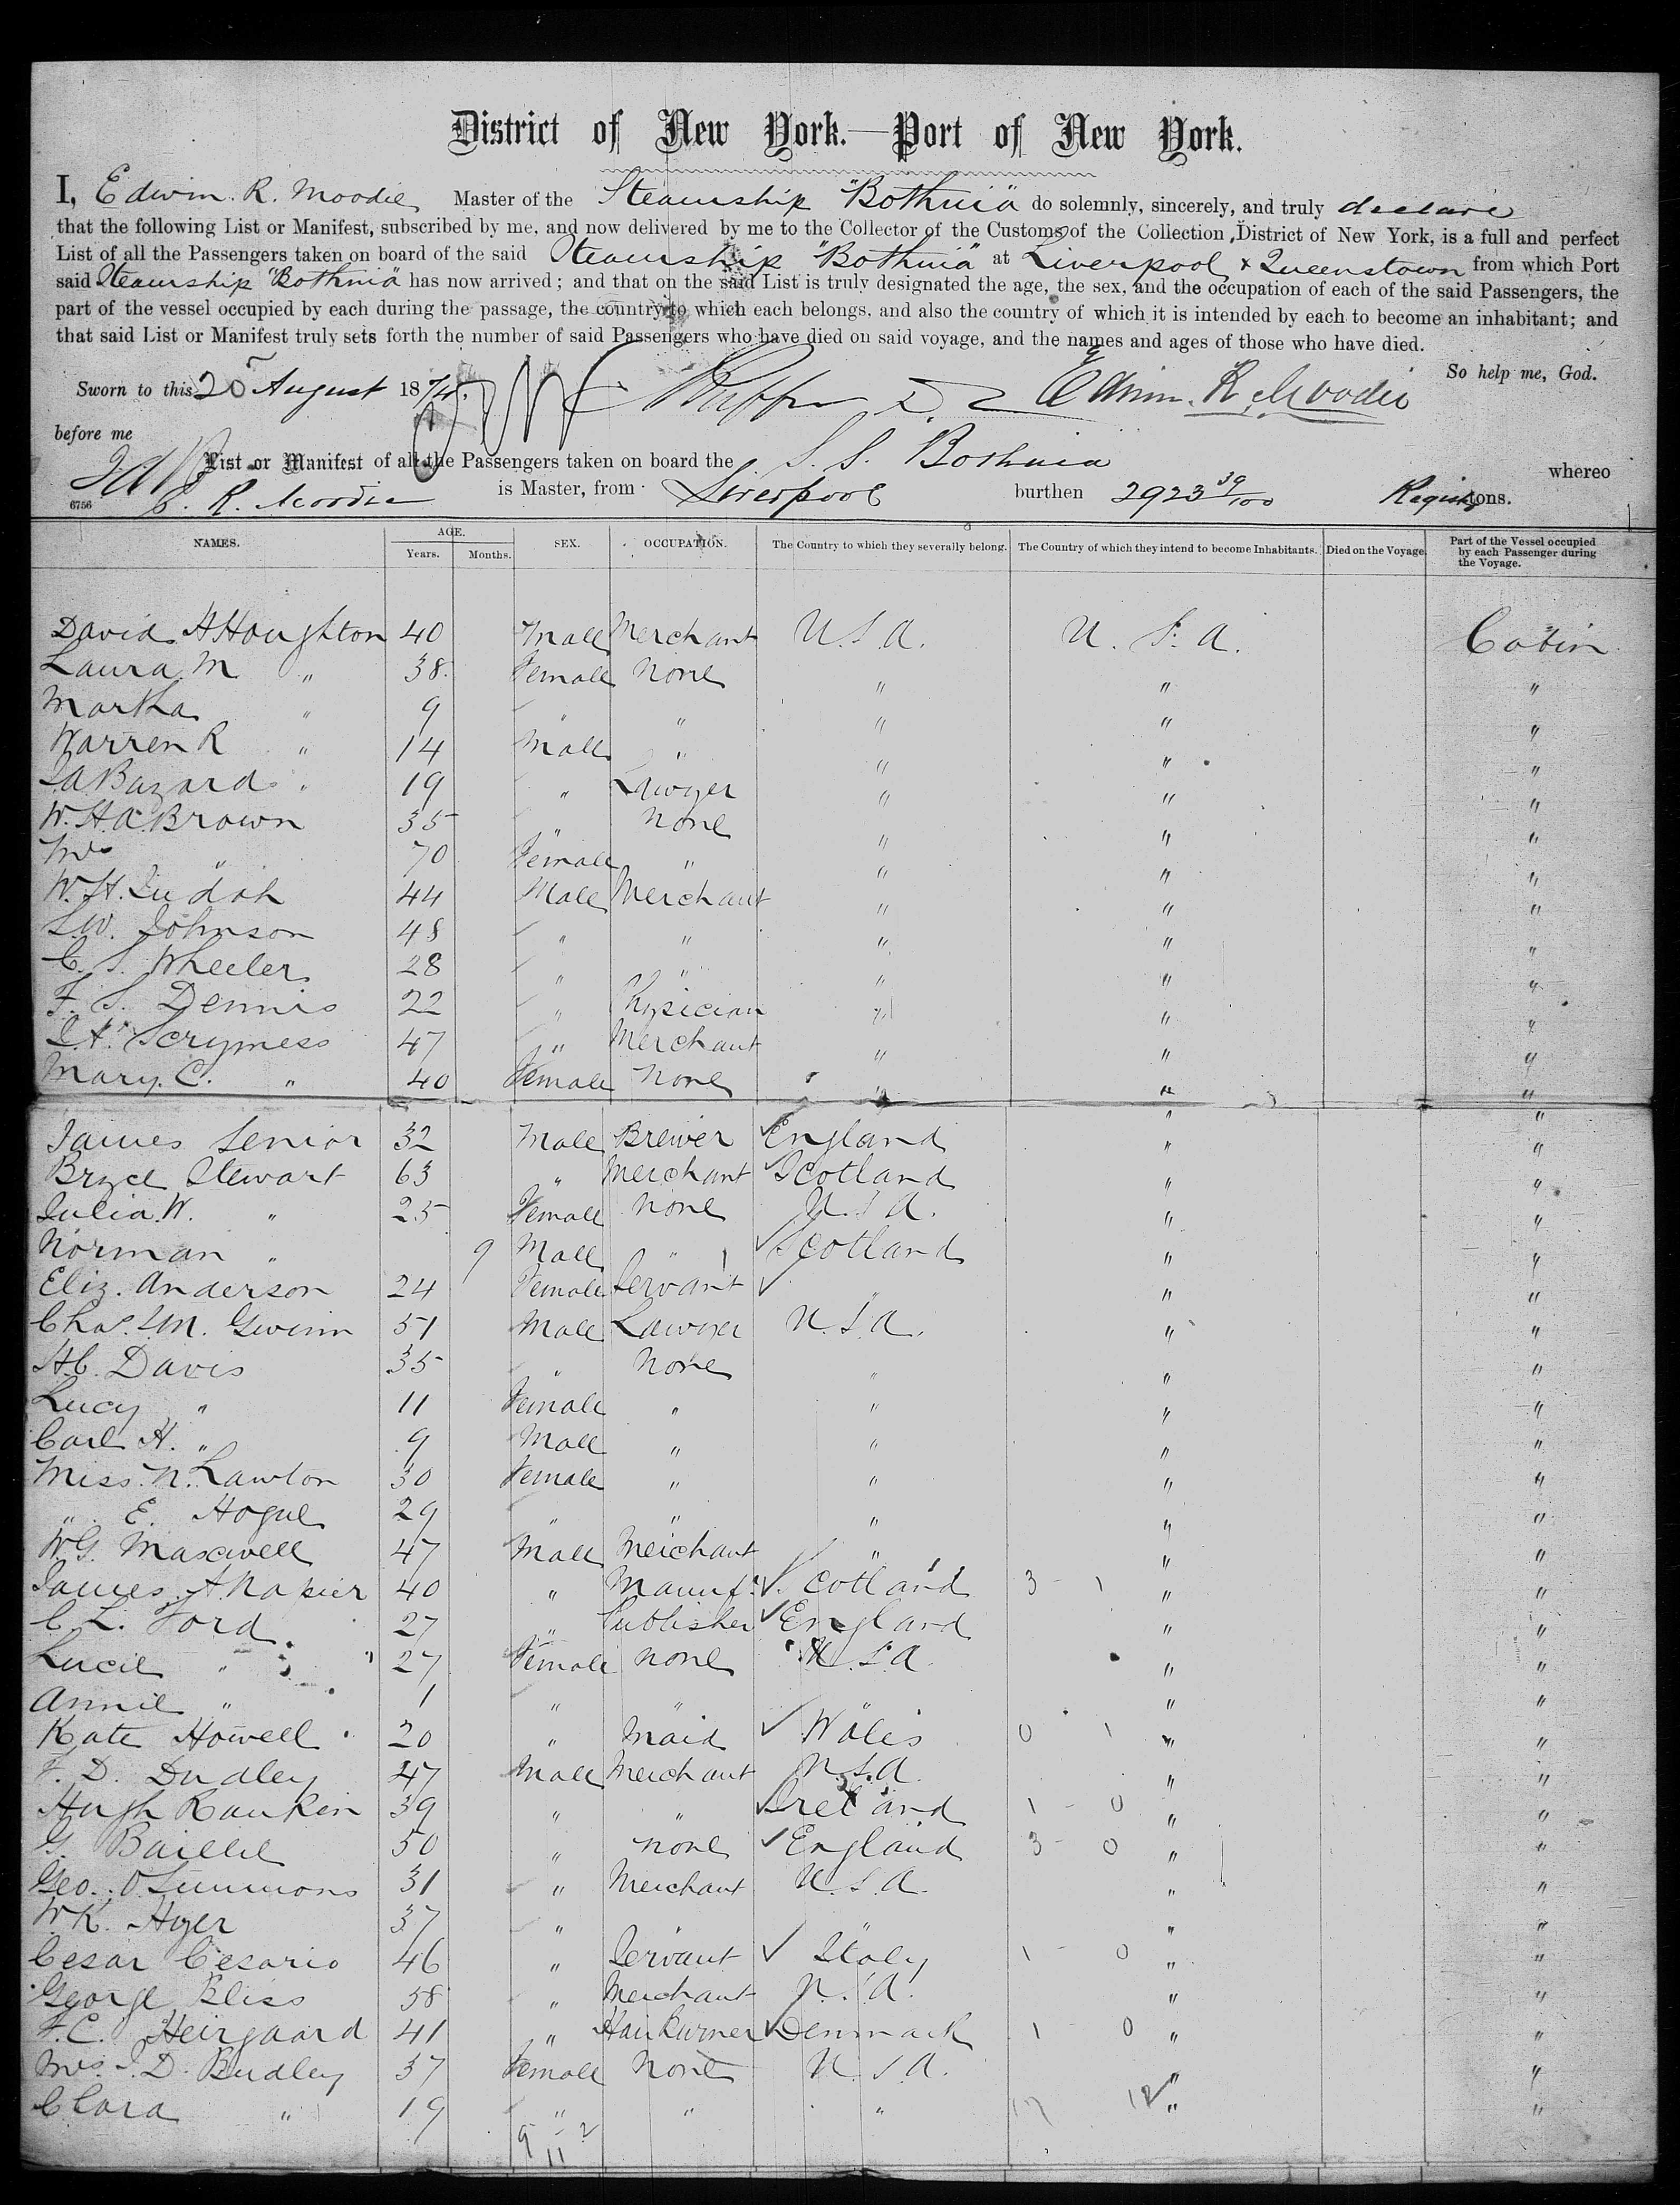 District of New York.—Port of New York.
I, Edwin. R. Moodie Master of the Steamship "Bothnia" do solemnly, sincerely, and truly declare
that the following List or Manifest, subscribed by me, and now delivered by me to the Collector of the Customs of the Collection District of New York, is a full and perfect
List of all the Passengers taken on board of the said Steamship "Bothnia" at Liverpool & Queenstown from which Port
said Steamship "Bothnia" has now arrived; and that on the said List is truly designated the age, the sex, and the occupation of each of the said Passengers, the
part of the vessel occupied by each during the passage, the country to which each belongs, and also the country of which it is intended by each to become an inhabitant; and
that said List or Manifest truly sets forth the number of said Passengers who have died on said voyage, and the names and ages of those who have died.
So help me, God.
Sworn to this 25 August 1874. Edwin. R. Moodie
before me
List or Manifest of all the Passengers taken on board the S. S. Bothnia whereo
6756 E. R. Moodie is Master, from Liverpool burthen 2923 39/100 Register tons.
NAMES. AGE. Years. Months. SEX. OCCUPATION. The Country to which they severally belong. The Country of which they intend to become Inhabitants. Died on the Voyage. Part of the Vessel occupied by each Passenger during the Voyage.
David H Houghton 40 Male Merchant U.S.A. U.S.A. Cabin
Laura M " 38 Female None " " "
Martha " 9 " " " " "
Warren R " 14 Male " " " "
Bazard " 19 " Lawyer " " "
W.H.A. Brown 35 " None " " "
Mrs " 70 Female " " " "
W.H. Judah 44 Male Merchant " " "
S.W. Johnson 48 " " " " "
C. S. Wheeler 28 " " " " "
F. S. Dennis 22 " Physician " " "
Scrymess 47 " Merchant " " "
Mary. C. " 40 Female None " " "
James Senior 32 Male Brewer England " "
Bryce Stewart 63 " Merchant Scotland " "
Julia. W. " 25 Female None U.S.A. " "
Norman " 9 Male " Scotland " "
Eliz. Anderson 24 Female Servant " " "
Chas. J.M. Gwinn 51 Male Lawyer U.S.A. " "
H.C. Davis 35 " None " " "
Lucy " 11 Female " " " "
Carl H. " 9 Male " " " "
Miss. N. Lawton 30 Female " " " "
" E. Hogue 29 " " " " "
W.G. Maxwell 47 Male Merchant " " "
James. A. Napier 40 " Manufr. Scotland 3 - 1 " "
C. L. Ford 27 " Publisher England " "
Lucie " 27 Female None U.S.A. " "
Annie " 1 " " " "
Kate Howell 20 " Maid Wales 0 1 " "
F. D. Dudley 47 Male Merchant U.S.A. " "
Hugh Rankin 39 " " Ireland 1 - 0 " "
G. Baillie 50 " None England 3 - 0 " "
Geo. O Simmons 31 " Merchant U.S.A. " "
W.K. Ayer 37 " " "
Cesar Cesario 46 " Servant Italy 1 - 0 " "
George Bliss 58 " Merchant U.S.A. " "
F.C. Heirgaard 41 " Denmark 1 - 0 " "
Mrs. J. D. Budley 37 Female None U.S.A. " "
Clara " 19 " " " 12 " "
9 - 2
11